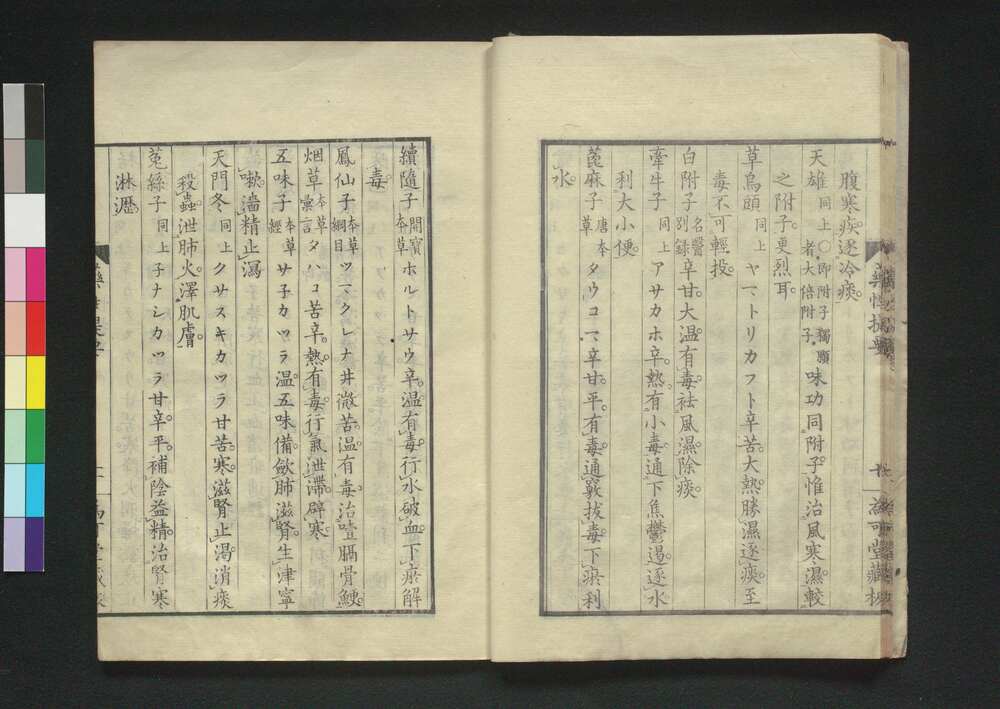 腹寒疾。逐冷痰。
天雄 同上〇即附子獨顆者大倍附子 味功同附子。惟治風寒濕較
之附子。更烈耳。
草烏頭 同上 ヤマトリカフト 辛苦。大熱。勝濕逐痰。至
毒不可輕投。
白附子 名醫別録 辛甘。大温。有毒。祛風濕除痰。
牽牛子 同上 アサカホ 辛。熱。有小毒。通下焦鬱遏。逐水
利大小便。
蓖麻子 唐本草 タウコマ 辛甘。平。有毒。通竅拔毒。下瘀利
水。
續隨子 開寶本草 ホルトサウ 辛。温。有毒。行水破血。下瘀解
毒。
鳳仙子 本草綱目 ツマクレナ井 微苦。温。有毒。治噎膈骨鯁。
烟草 本草彙言 タハコ 苦辛。熱。有毒。行氣泄滯。辟寒
嗽。濇精止瀉
五味子 本草經 サ子カツラ 温。五味備。斂肺滋腎。生津寧
天門冬 同上 クサスキカツラ 甘苦。寒。滋腎止渴。消痰
殺蟲。泄肺火。澤肌膚。
菟絲子 同上 子ナシカツラ 甘辛。平。補陰益精。治腎寒
淋瀝。